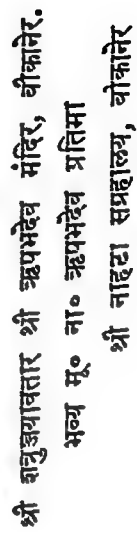 श्री शत्रुञ्जयावतार श्री ऋषभदेव मंदिर, बीकानेर.
भव्य मू० ना० ऋषभदेव प्रतिमा
श्री नाहटा सग्रहालय, बीकानेर